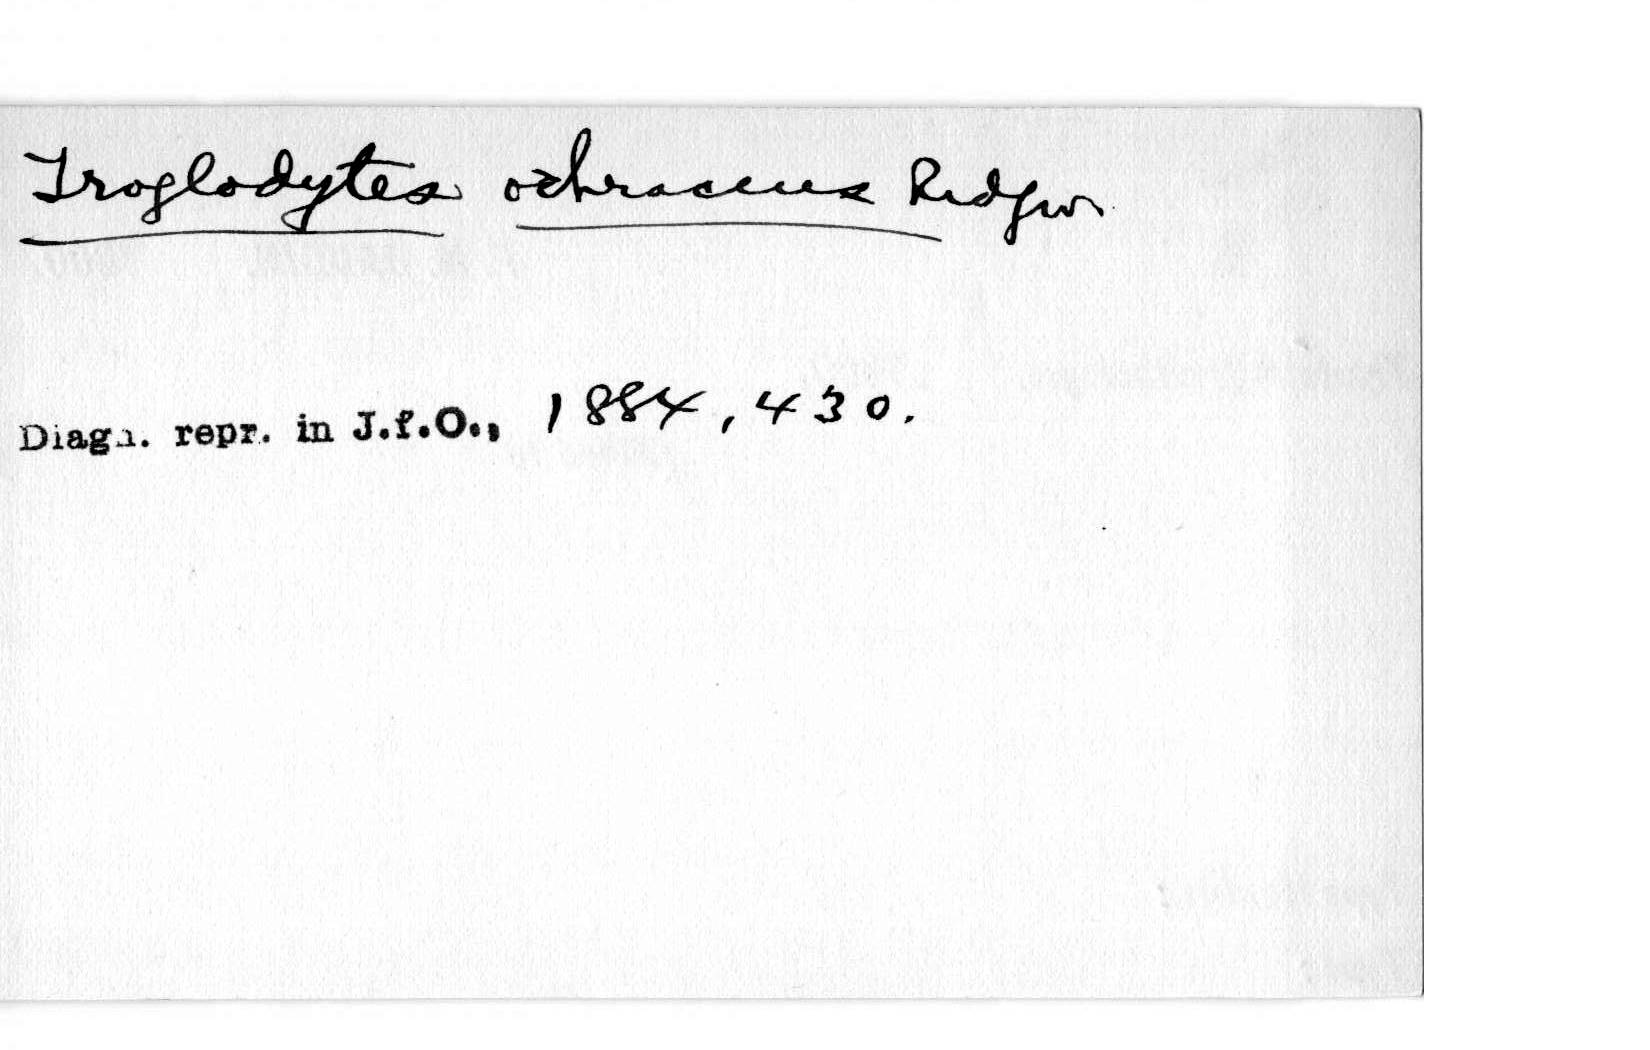 Troglodytes ochraceus Ridgw.
Diagn. repr. in J.f.O., 1884, 430.